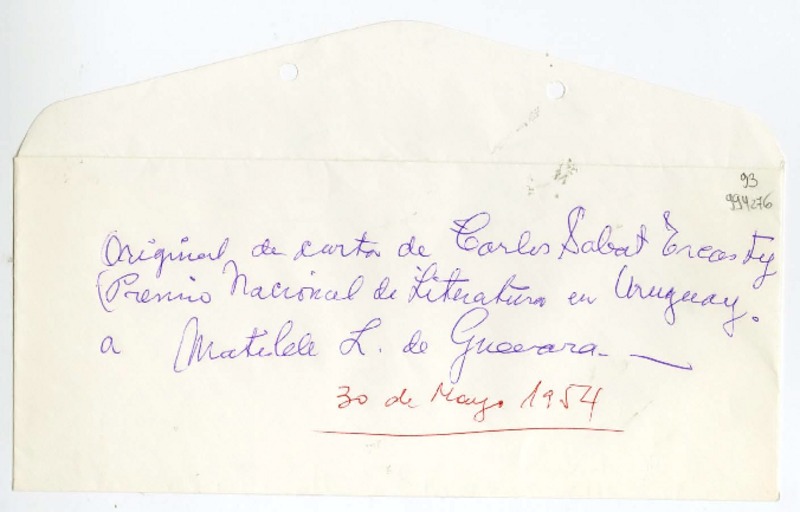 93
994276
Original de carta de Carlos Sabat Ercasty
(Premio Nacional de Literatura en Uruguay.
a Matilde L. de Guevara.
30 de Mayo 1954